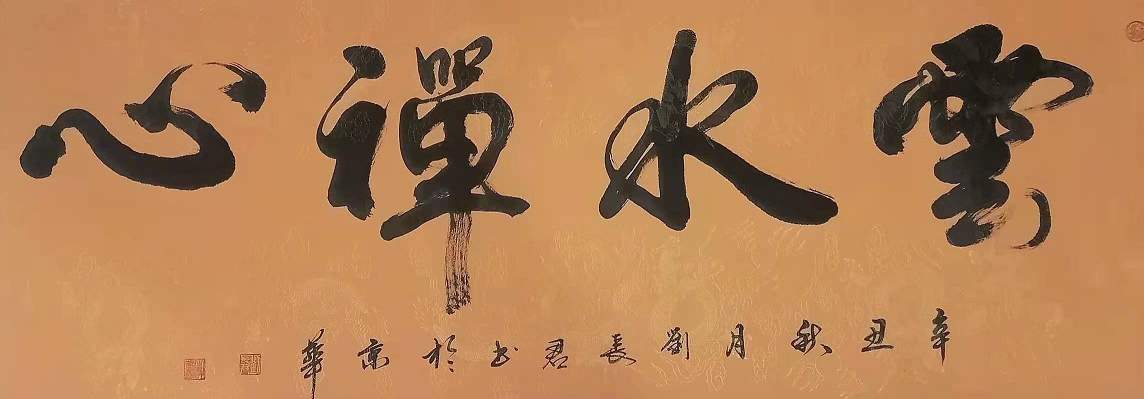 雲水禪心
辛丑秋月劉長君书於京華